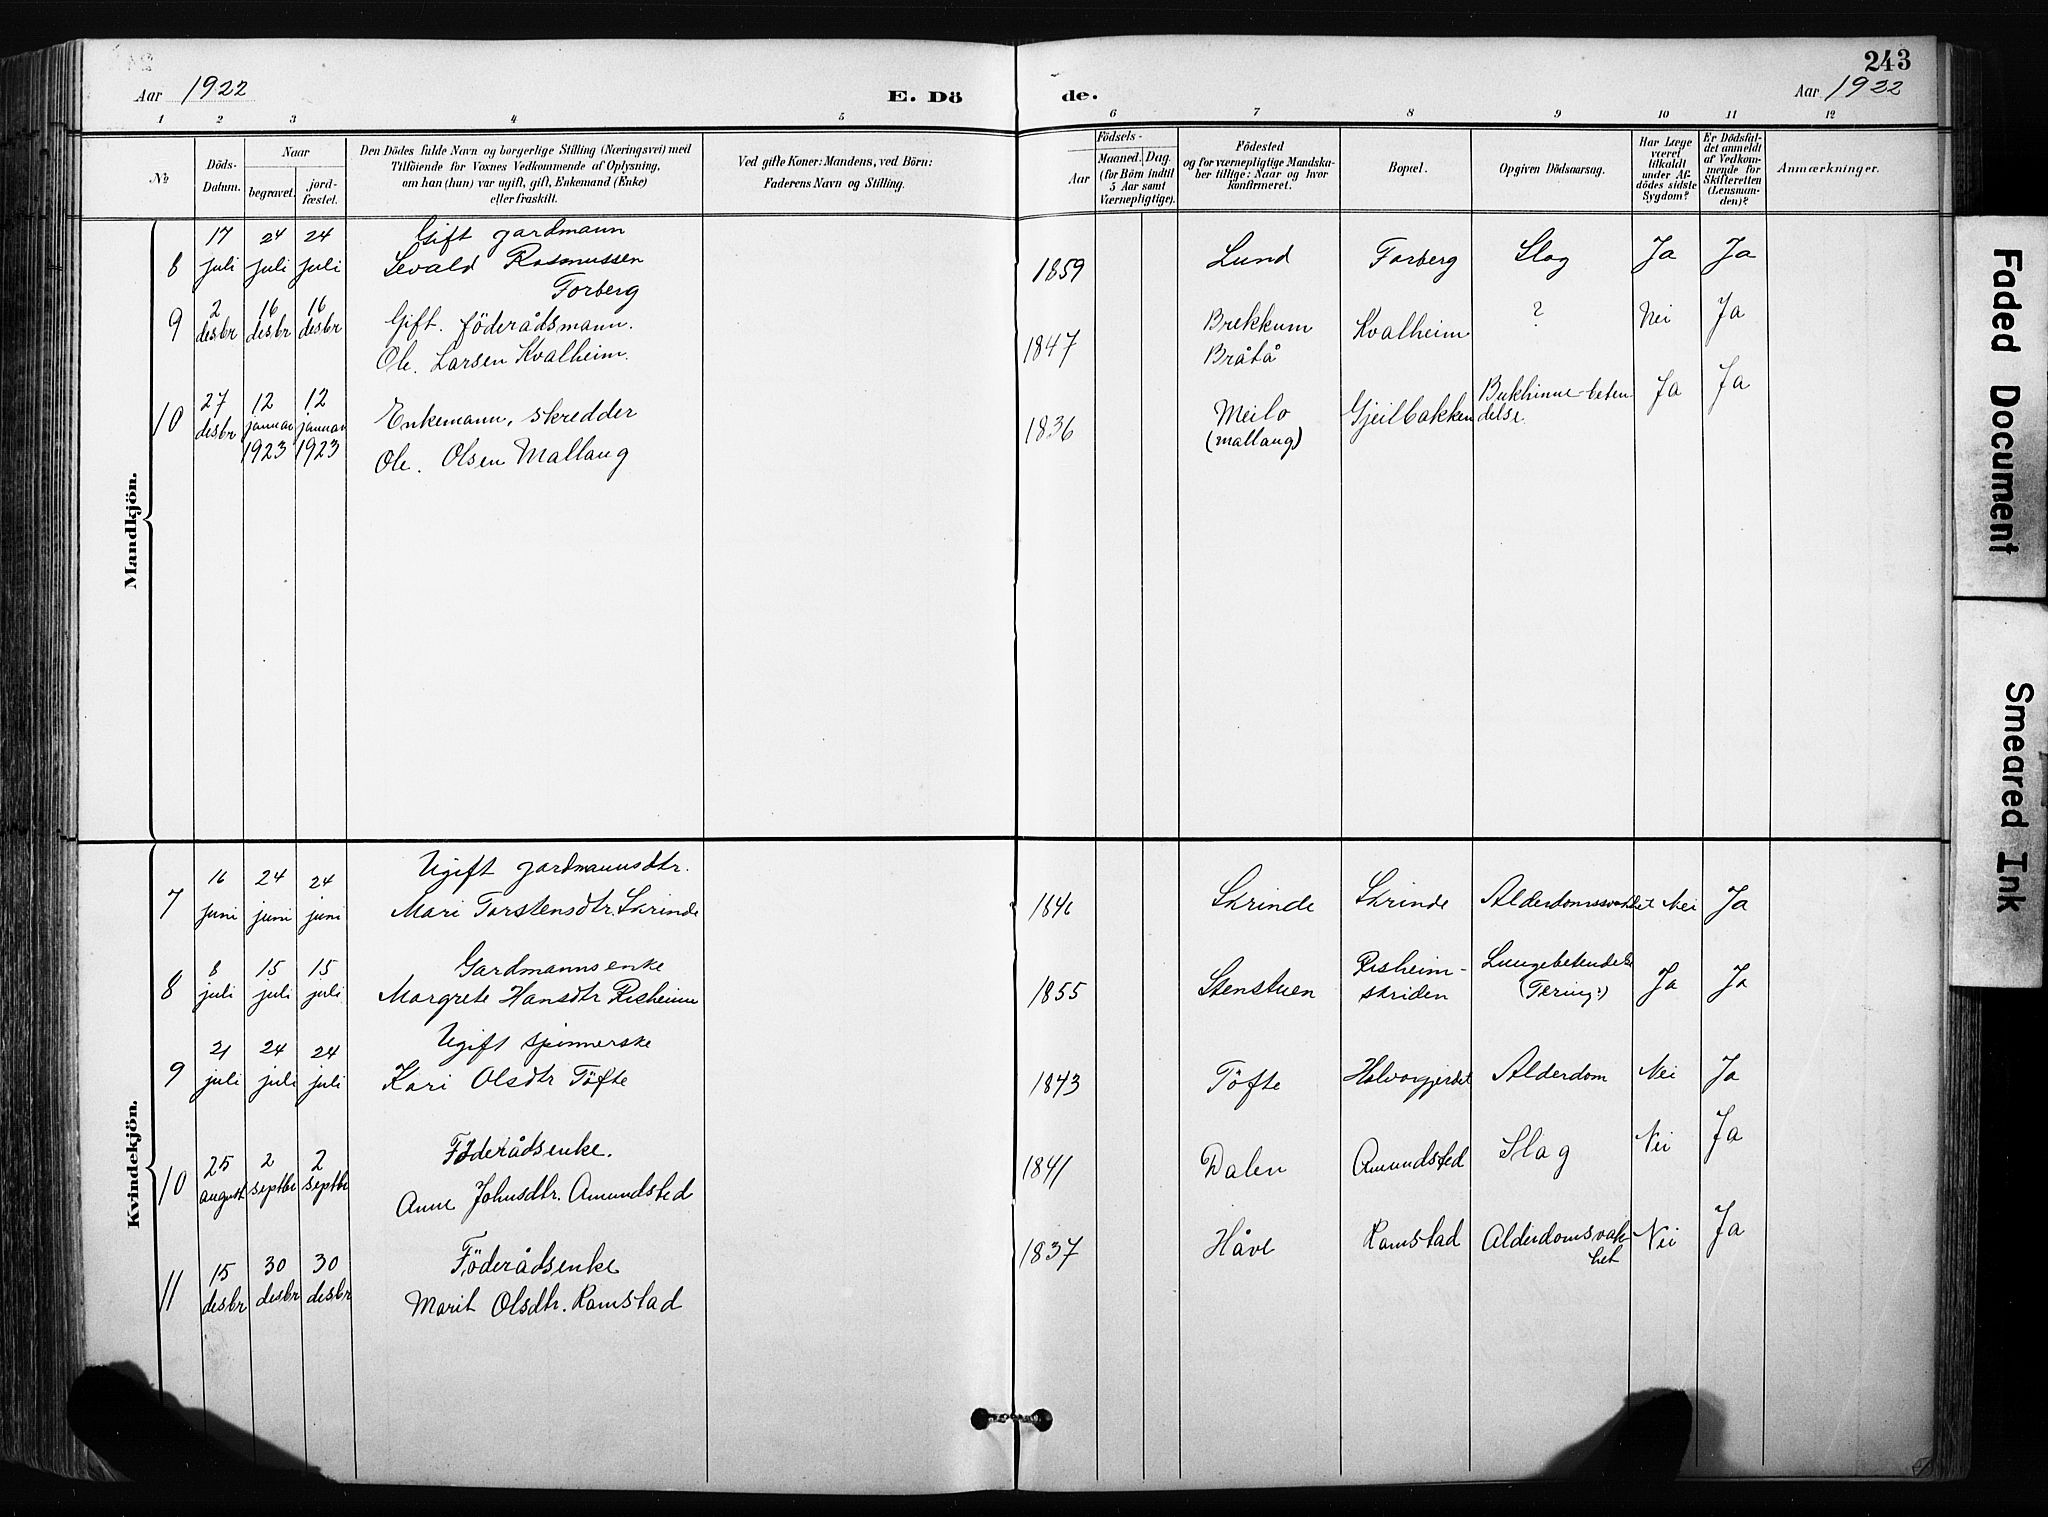 243
Aar 1922
E. Dö
de.
Aar 1922
1 2 3 4 5 6 7 8 9 10 11 12
No
Döds-
Datum.
Naar
begravet.
jord-
fæstet.
Den Dödes fulde Navn og borgerlige Stilling (Næringsvei) med
Tilföiende for Voxnes Vedkommende af Oplysning,
om han (hun) var ugift, gift, Enkemand (Enke)
eller fraskilt.
Ved gifte Koner: Mandens, ved Börn:
Faderens Navn og Stilling.
Födsels-
Aar
Maaned. Dag.
(for Börn indtil
5 Aar samt
Værnepligtige).
Födested
og for værnepligtige Mandska-
ber tillige: Naar og hvor
konfirmeret.
Bopæl.
Opgiven Dödsaarsag.
Har Læge
været
tilkaldt
under Af-
dödes sidste
Sygdom?
Er Dödsfal-
det anmeldt
af Vedkom-
mende for
Skifteretten
(Lensman-
den)?
Anmærkninger.
Mandkjön.
8 17 juli 24 juli 24 juli Gift gardmann
Sevald Rasmussen
Forberg
1859 Lund Forberg Slag Ja Ja
9 2 desbr 16 desbr 16 desbr Gift. föderådsmann.
Ole. Larsen Kvalheim.
1847 Brekkum
Bråtå
Kvalheim ? Nei Ja
10 27 desbr 12 januar 1923 12 januar 1923 Enkemann, skredder
Ole. Olsen Mallaug
1836 Meilo
(mallaug)
Gjeilbakken Bukhinne-beten-
delse
Ja Ja
Kvindekjön.
7 16 juni 24 juni 24 juni Ugift gardmannsdtr.
Mari Torstensdtr. Skrinde
1846 Skrinde Skrinde Alderdomssvakhet Nei Ja
8 8 juli 15 juli 15 juli Gardmannsenke
Margrete Hansdtr Risheim
1855 Stenstuen Risheim-
skriden
Lungebetendelse
(Tæring?)
Ja Ja
9 21 juli 24 juli 24 juli Ugift spinnerske
Kari Olsdtr Töfte
1843 Töfte Halvorgjerdet Alderdom Nei Ja
10 25 august 2 septbr 2 septbr Föderådsenke.
Anne Johnsdtr. Amundsted
1841 Dalen Amundsted Slag Nei Ja
11 15 desbr 30 desbr 30 desbr Föderådsenke
Marit Olsdtr. Ramstad
1837 Håve Ramstad Alderdomsvak-
het
Nei Ja
Faded Document
Smeared Ink